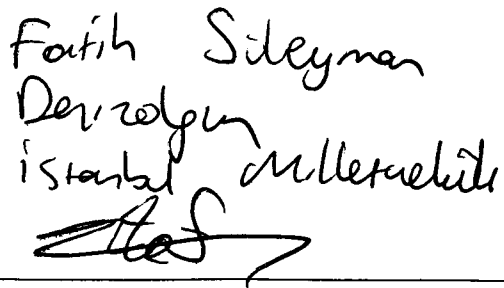 Fatih Süleyman
Denizolgun
İstanbul Milletvekili